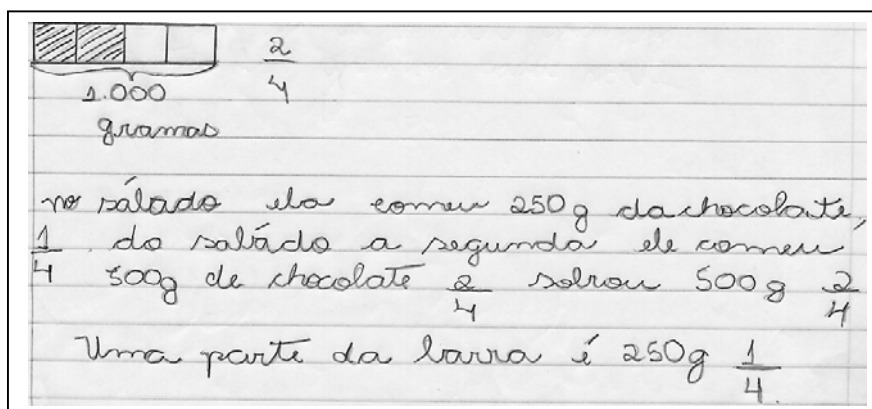 2/4
1.000
gramas
no sálado ela comeu 250g da chocolate,
1/4 . do saládo a segunda ele comeu
500g de chocolate 2/4 sobrou 500g 2/4
Uma parte da barra é 250g 1/4.